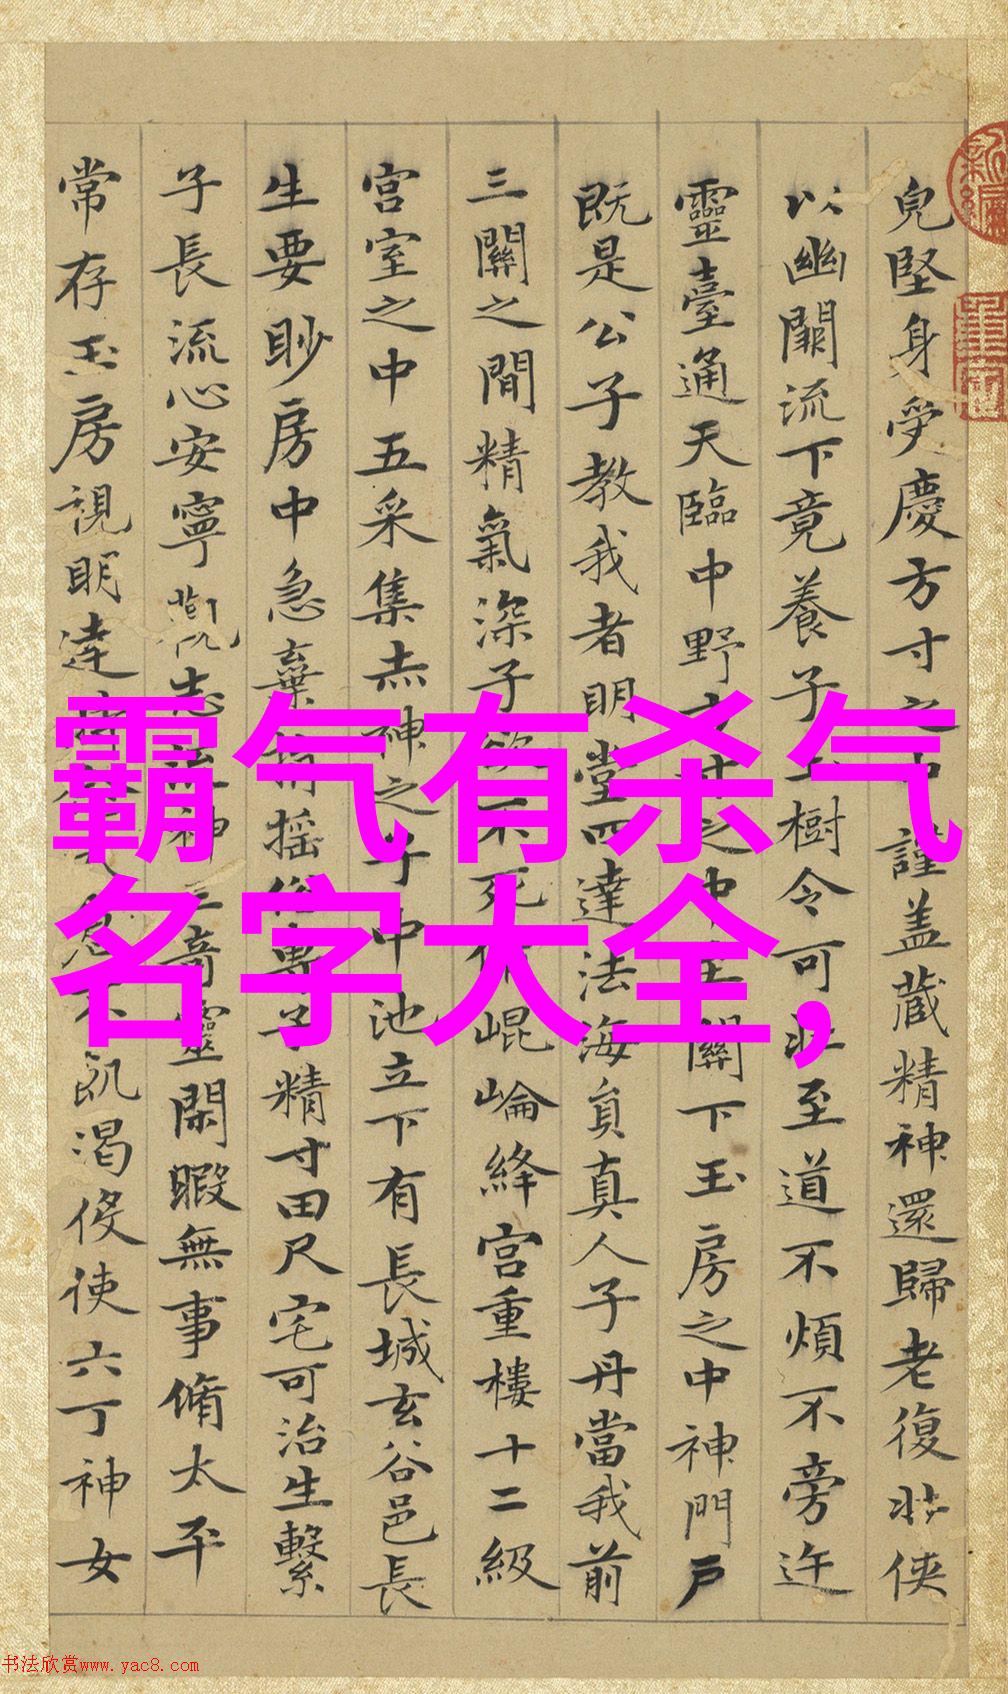 皃堅身受慶方寸之中謹盖藏精神還歸老復壮侠
以幽關流下竟養子玉樹令可壮至道不煩不旁迕
靈臺通天臨中野方寸之中至關下玉房之中神門戶
既是公子教我者明堂四達法海員真人子丹當我前
三關之間精氣深子欲不死脩崐崘絳宮重樓十二級
宮室之中五采集赤神之子中池立下有長城玄谷邑長
生要眇房中急棄捐搖俗專子精寸田尺宅可治生繫
子長流心安寧觀志流神三奇靈閑暇無事脩太平
常存玉房視明達
飢渴侵使六丁神女
新編
霸气有杀气
名字大全,
书法欣赏www.yac8.com